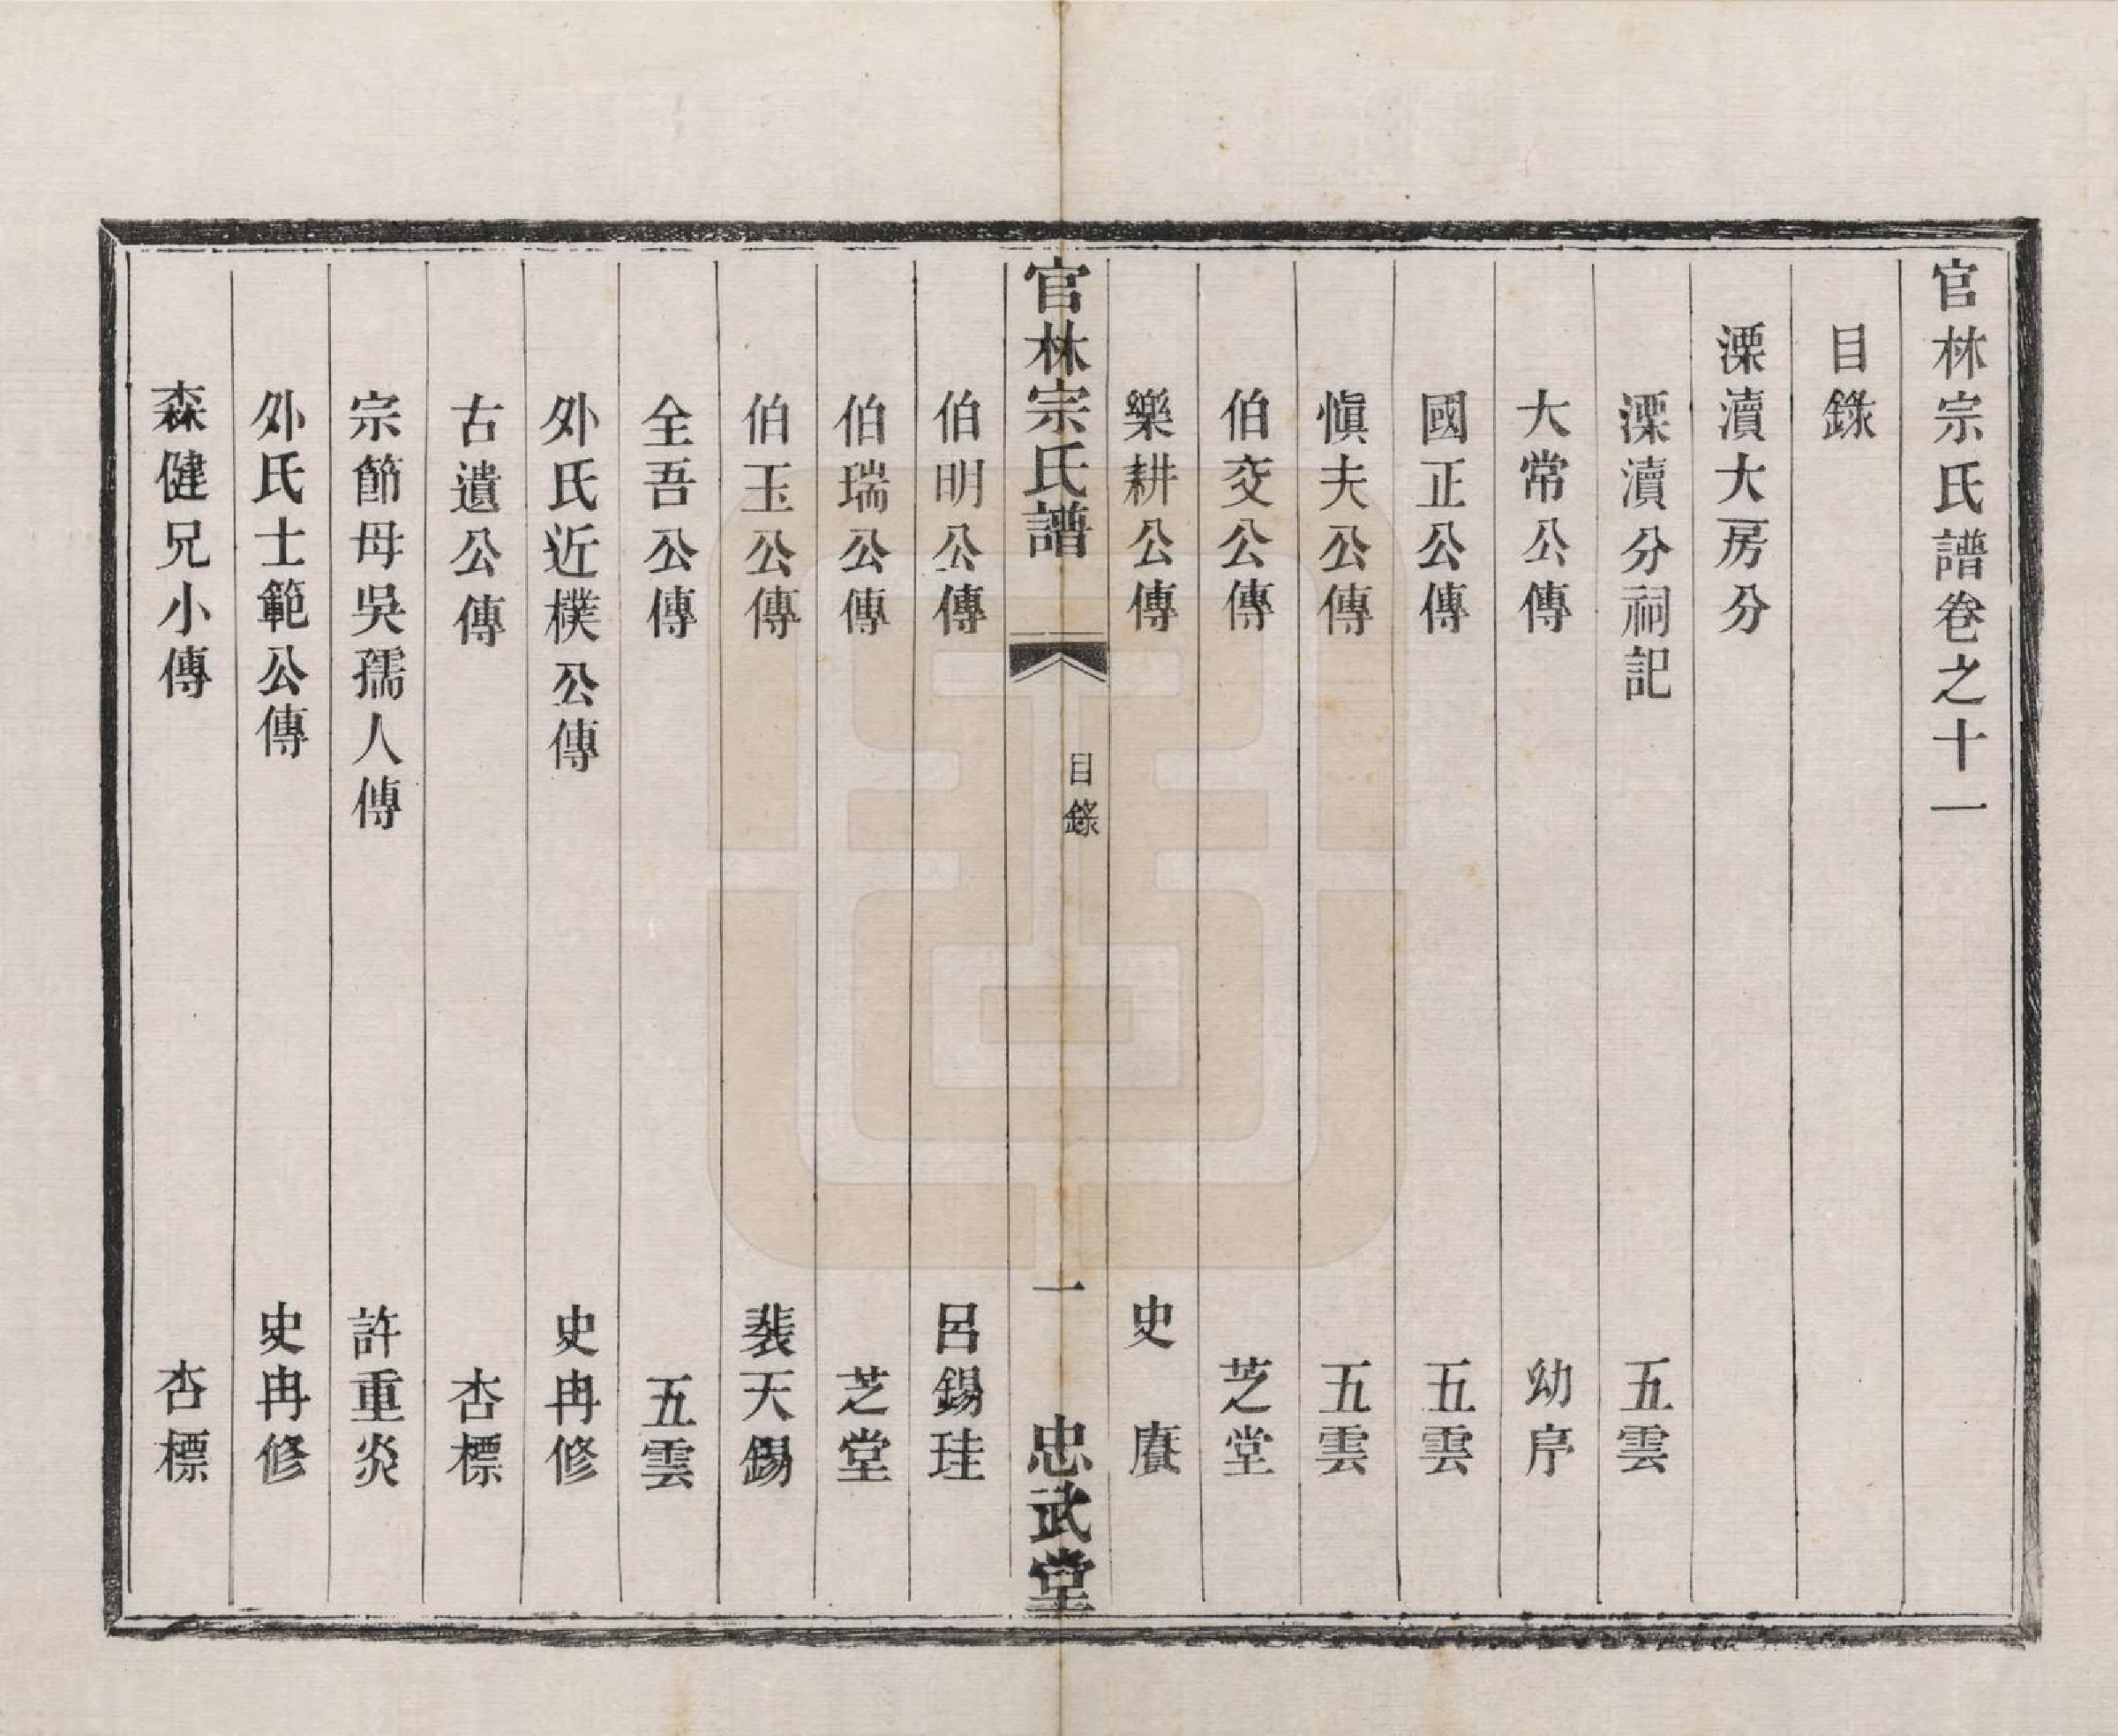 官林宗氏譜卷之十一
目錄
溧瀆大房分
溧瀆分祠記 五雲
大常公傳 幼序
國正公傳 五雲
愼夫公傳 五雲
伯交公傳 芝堂
樂耕公傳 史
官林宗氏譜 目錄 一 忠武堂
伯明公傳 呂錫珪
伯瑞公傳 芝堂
伯玉公傳 裴天錫
全吾公傳 五雲
外氏近樸公傳 史冉修
古遺公傳 杏標
宗節母吳孺人傳 許重炎
外氏士範公傳 史冉修
森健兄小傳 杏標